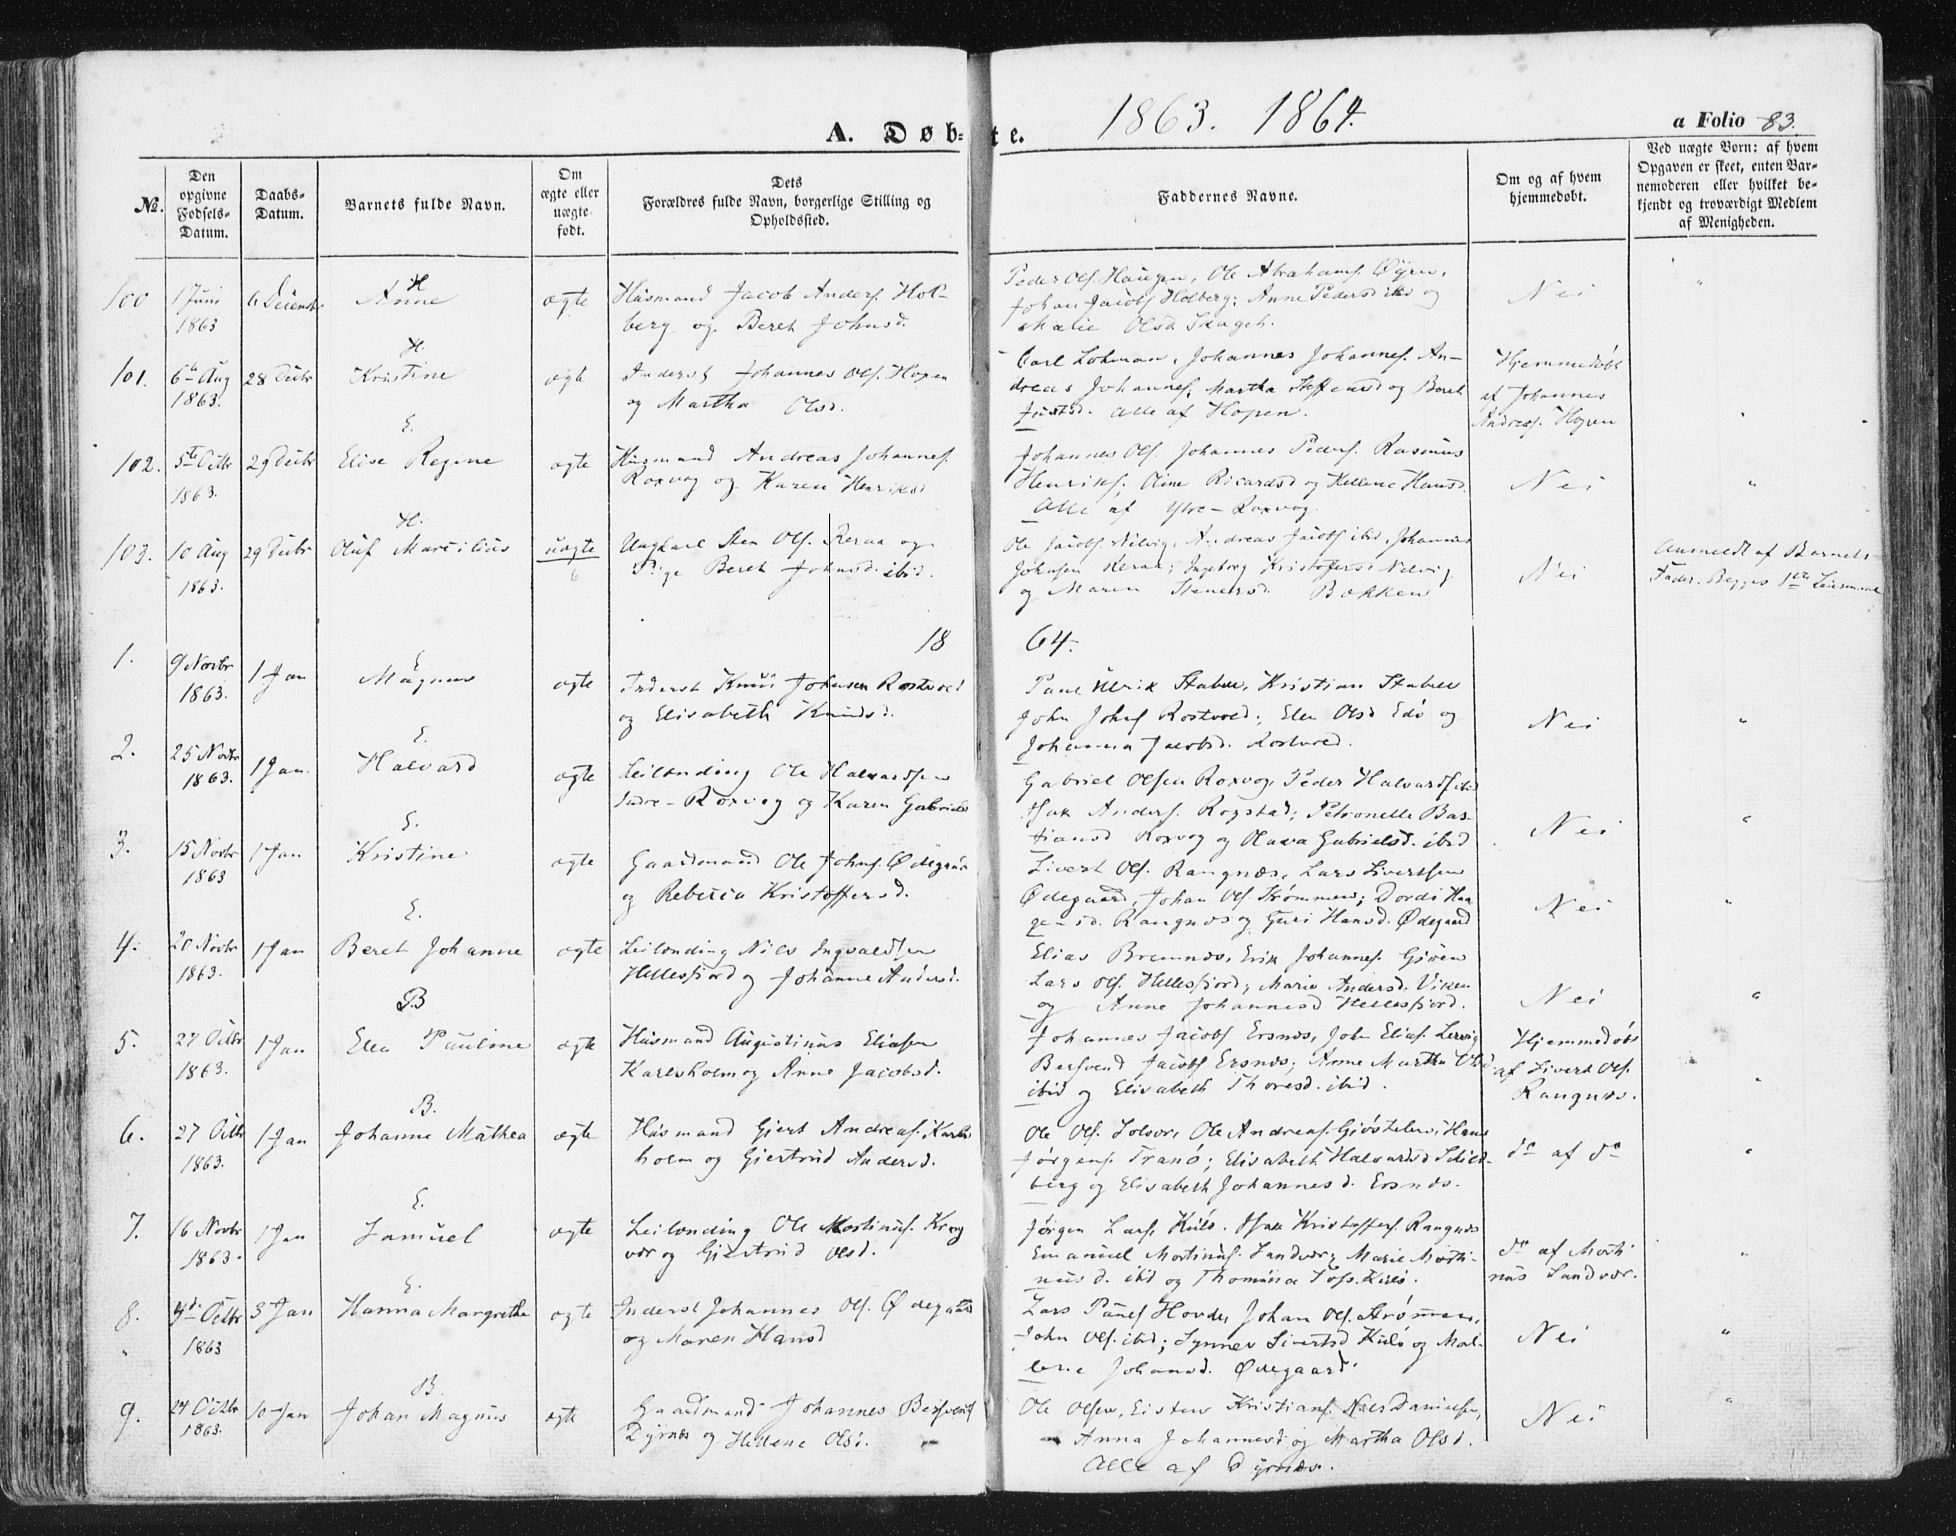 A. Døb-te. 1863. 1864. a Folio 83.
No.
Den opgivne Fødsels-Datum.
Daabs-Datum.
Barnets fulde Navn.
Om ægte eller uægte født.
Dets Forældres fulde Navn, borgerlige Stilling og Opholdssted.
Faddernes Navne.
Om og af hvem hjemmedøbt.
Ved uægte Born: af hvem Opgaven er skeet, enten Barnemoderen eller hvilket bekjendt og troværdigt Medlem af Menigheden.
H
100 1 Juni 6 Decemb Anne ægte Husmand Jacob Anders. Hol- Peder Ols. Haugen, Ole Abrahams. Øyen, Nei "
1863 berg og Beret Johnsd. Johan Jacobs Holberg; Anne Pedersd ibd og
Marie Olsd Skaget.
H.
101. 6te Aug 28 Decbr Kristine ægte Inderst Johannes Ols. Hopen Carl Lohman, Johannes Johannes. An- Hjemmedøbt
1863. og Martha Olsd. dreas Johannes; Martha Steffensd og Beret af Johannes
Justsd. Alle af Hopen. Andreas. Hopen "
E.
102. 5te Octbr 29 Decbr Elise Regine ægte Husmand Andreas Johannes. Johannes Ols. Johannes Peders. Rasmus
1863. Roxvog og Karen Henriksd Henriks; Oline Ricardsd og Hellene Hansd. Nei "
Alle af Ytre-Roxvog.
H.
103. 10 Aug 29 Decbr Oluf Marcilius uægte Ungkarl Sten Ols. Reraa og Ole Jacobs. Nelvig, Andreas Jacobs ibd, Johannes Anmeldt af Barnets
1863. 6 Pige Beret Johnsd. ibid. Johnsen Reraa; Ingeborg Kristoffersd Nelvig Nei Fader. Begges 1ste Leiermaal
og Maren Stenersd. Bakken
1864.
E.
1. 9 Novbr 1 Jan Magnus ægte Inderst Knud Johnsen Rostvold Paul Ulrik Stabel, Kristian Stabell
1863. og Elisabeth Knudsd. John Johns Rostvold; Elen Olsd Edø og Nei "
Johanna Jacobsd. Rostvold.
E.
2. 25 Novbr 1 Jan. Halvard ægte Leilænding Ole Halvardsen Gabriel Olsen Roxvog, Peder Halvards ibid
1863. Indre-Roxvog og Karen Gabrielsd Isak Anders. Rogstad; Petronelle Bas-
tiansd Roxvog og Olava Gabrielsd. ibid Nei "
E.
3. 15 Novbr 1 Jan Kristine ægte Gaardmand Ole Johns. Ødegaard Sivert Ols. Rangnæs, Lars Sivertsen
1863 og Rebecca Kristoffersd. Ødegaard, Johan Ols Strømmen; Dordi Haa- Nei "
gensd. Rangnæs og Guri Hansd. Ødegaard
E.
4. 20 Novbr 1 Jan Beret Johanne ægte Leilænding Nils Ingvaldsen Elias Bremnes, Erik Johannes. Gjøen
1863. Hellesfjord og Johanne Andersd. Lars Ols. Hellesfjord; Marie Andersd. Viken
og Anne Johannesd Hellesfjord. Nei "
B
5. 27 Octbr 1 Jan Elen Pauline ægte Husmand Augustinus Eliasen Johannes Jacobs Ersnæs, John Elias. Lervig Hjemmedøbt
1863. Karlsholm og Anne Jacobsd. Bersvend Jacobs Ersnæs; Anne Martha Olsd af Sivert Ols. "
ibid og Elisabeth Thoresd. ibid. Rangnæs.
B.
6. 27 Octbr 1 Jan Johanne Mathea ægte Husmand Gjert Andreas. Karls- Ole Ols. Solvær, Ole Andreas. Gjøstelen, Hans do af do "
1863. holm og Gjertrud Andersd. Jørgens. Tranø; Elisabeth Halvardsd Schieldberg og Elisabeth Johannesd. Ersnæs.
E.
7. 16 Novbr 1 Jan Samuel ægte Leilænding Ole Mortinus. Krog Jørgen Lars. Kulø. Isak Kristoffers Rangnæs
1863. vær og Gjertrud Olsd. Emanuel Mortinus. Sandvær; Marie Morti- do af Morti
nusd. ibd og Thomina Tofs. Kulø. nus Sandvær. "
E.
8. 4de Octbr 3 Jan Hanna Margrethe ægte Inderst Johannes Ols. Ødegaard Lars Pauls Hovde, Johan Ols. Strømmen,
1863 og Maren Hansd John Ols. ibid; Synnev Sivertsd Kulø og Mal- Nei "
lene Johansd. Ødegaard.
B.
9. 24 Octbr 10 Jan Johan Magnus ægte Gaardmand Johannes Bersvends Ole Olsen, Eisten Kristians. Nils Danielsen, Nei "
1863. Dyrnæs og Hellene Olsd. Anna Johannesd og Martha Olsd.
Alle af Dyrnæs.